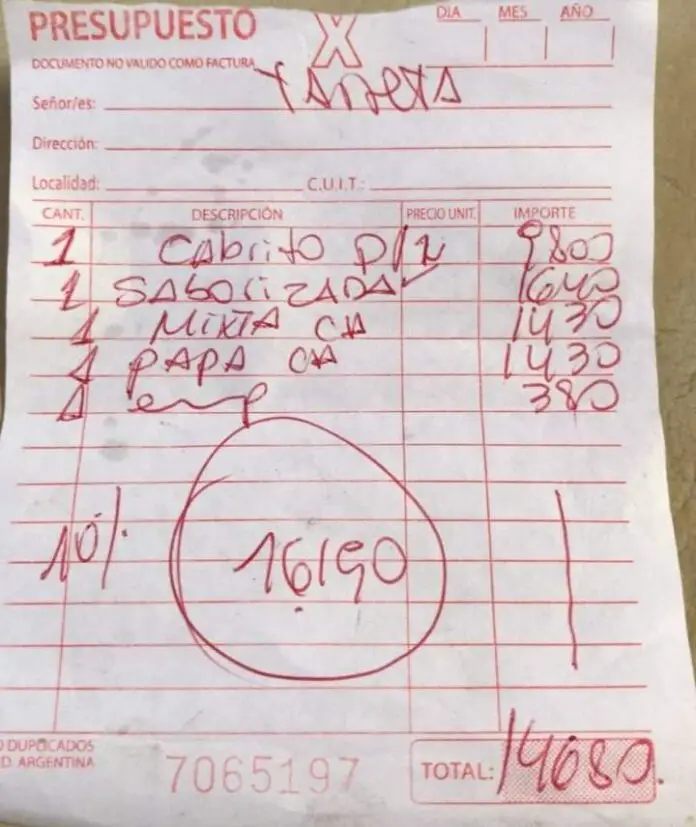 PRESUPUESTO X DIA MES AÑO
DOCUMENTO NO VALIDO COMO FACTURA
Señor/es: TARJETA
Dirección:
Localidad: C.U.I.T.:
CANT. DESCRIPCIÓN PRECIO UNIT. IMPORTE
1 Cabrito p/2 9800
1 SABORIZADA 1640
1 MIXTA CH 1430
1 PAPA CH 1430
1 emp 380
10% 16190
O DUPLICADOS
D. ARGENTINA
7065197 TOTAL: 14680.